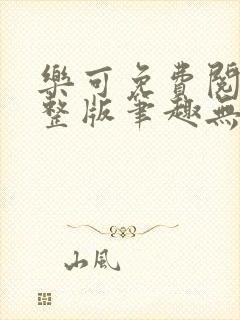 樂可免費閱
整版筆趣無
山風